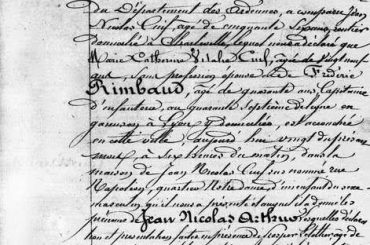 du Département des Ardennes, a comparu Jean
Nicolas Cuif, âgé de cinquante six ans, rentier
domicilié à Charleville, lequel nous a déclaré que
Marie Catherine Vitalie Cuif, âgée de vingt neuf
ans, sans profession épouse de Frédéric
Rimbaud, âgé de quarante ans Capitaine
d'infanterie, au quarante Septième de ligne en
garnison à Lyon, y domicilié, est accouchée
en cette ville, aujourd'hui vingt du présent
mois, à Six heures du matin, dans la
maison de Jean Nicolas Cuif susnommé rue
Napoléon, quartier Notre dame d'un enfant du sexe
masculin qu'il nous a présenté et auquel il a donné les
prénoms de Jean Nicolas Arthur lesquelles déclara
tion et présentation faites en présence de Prosper âgé de